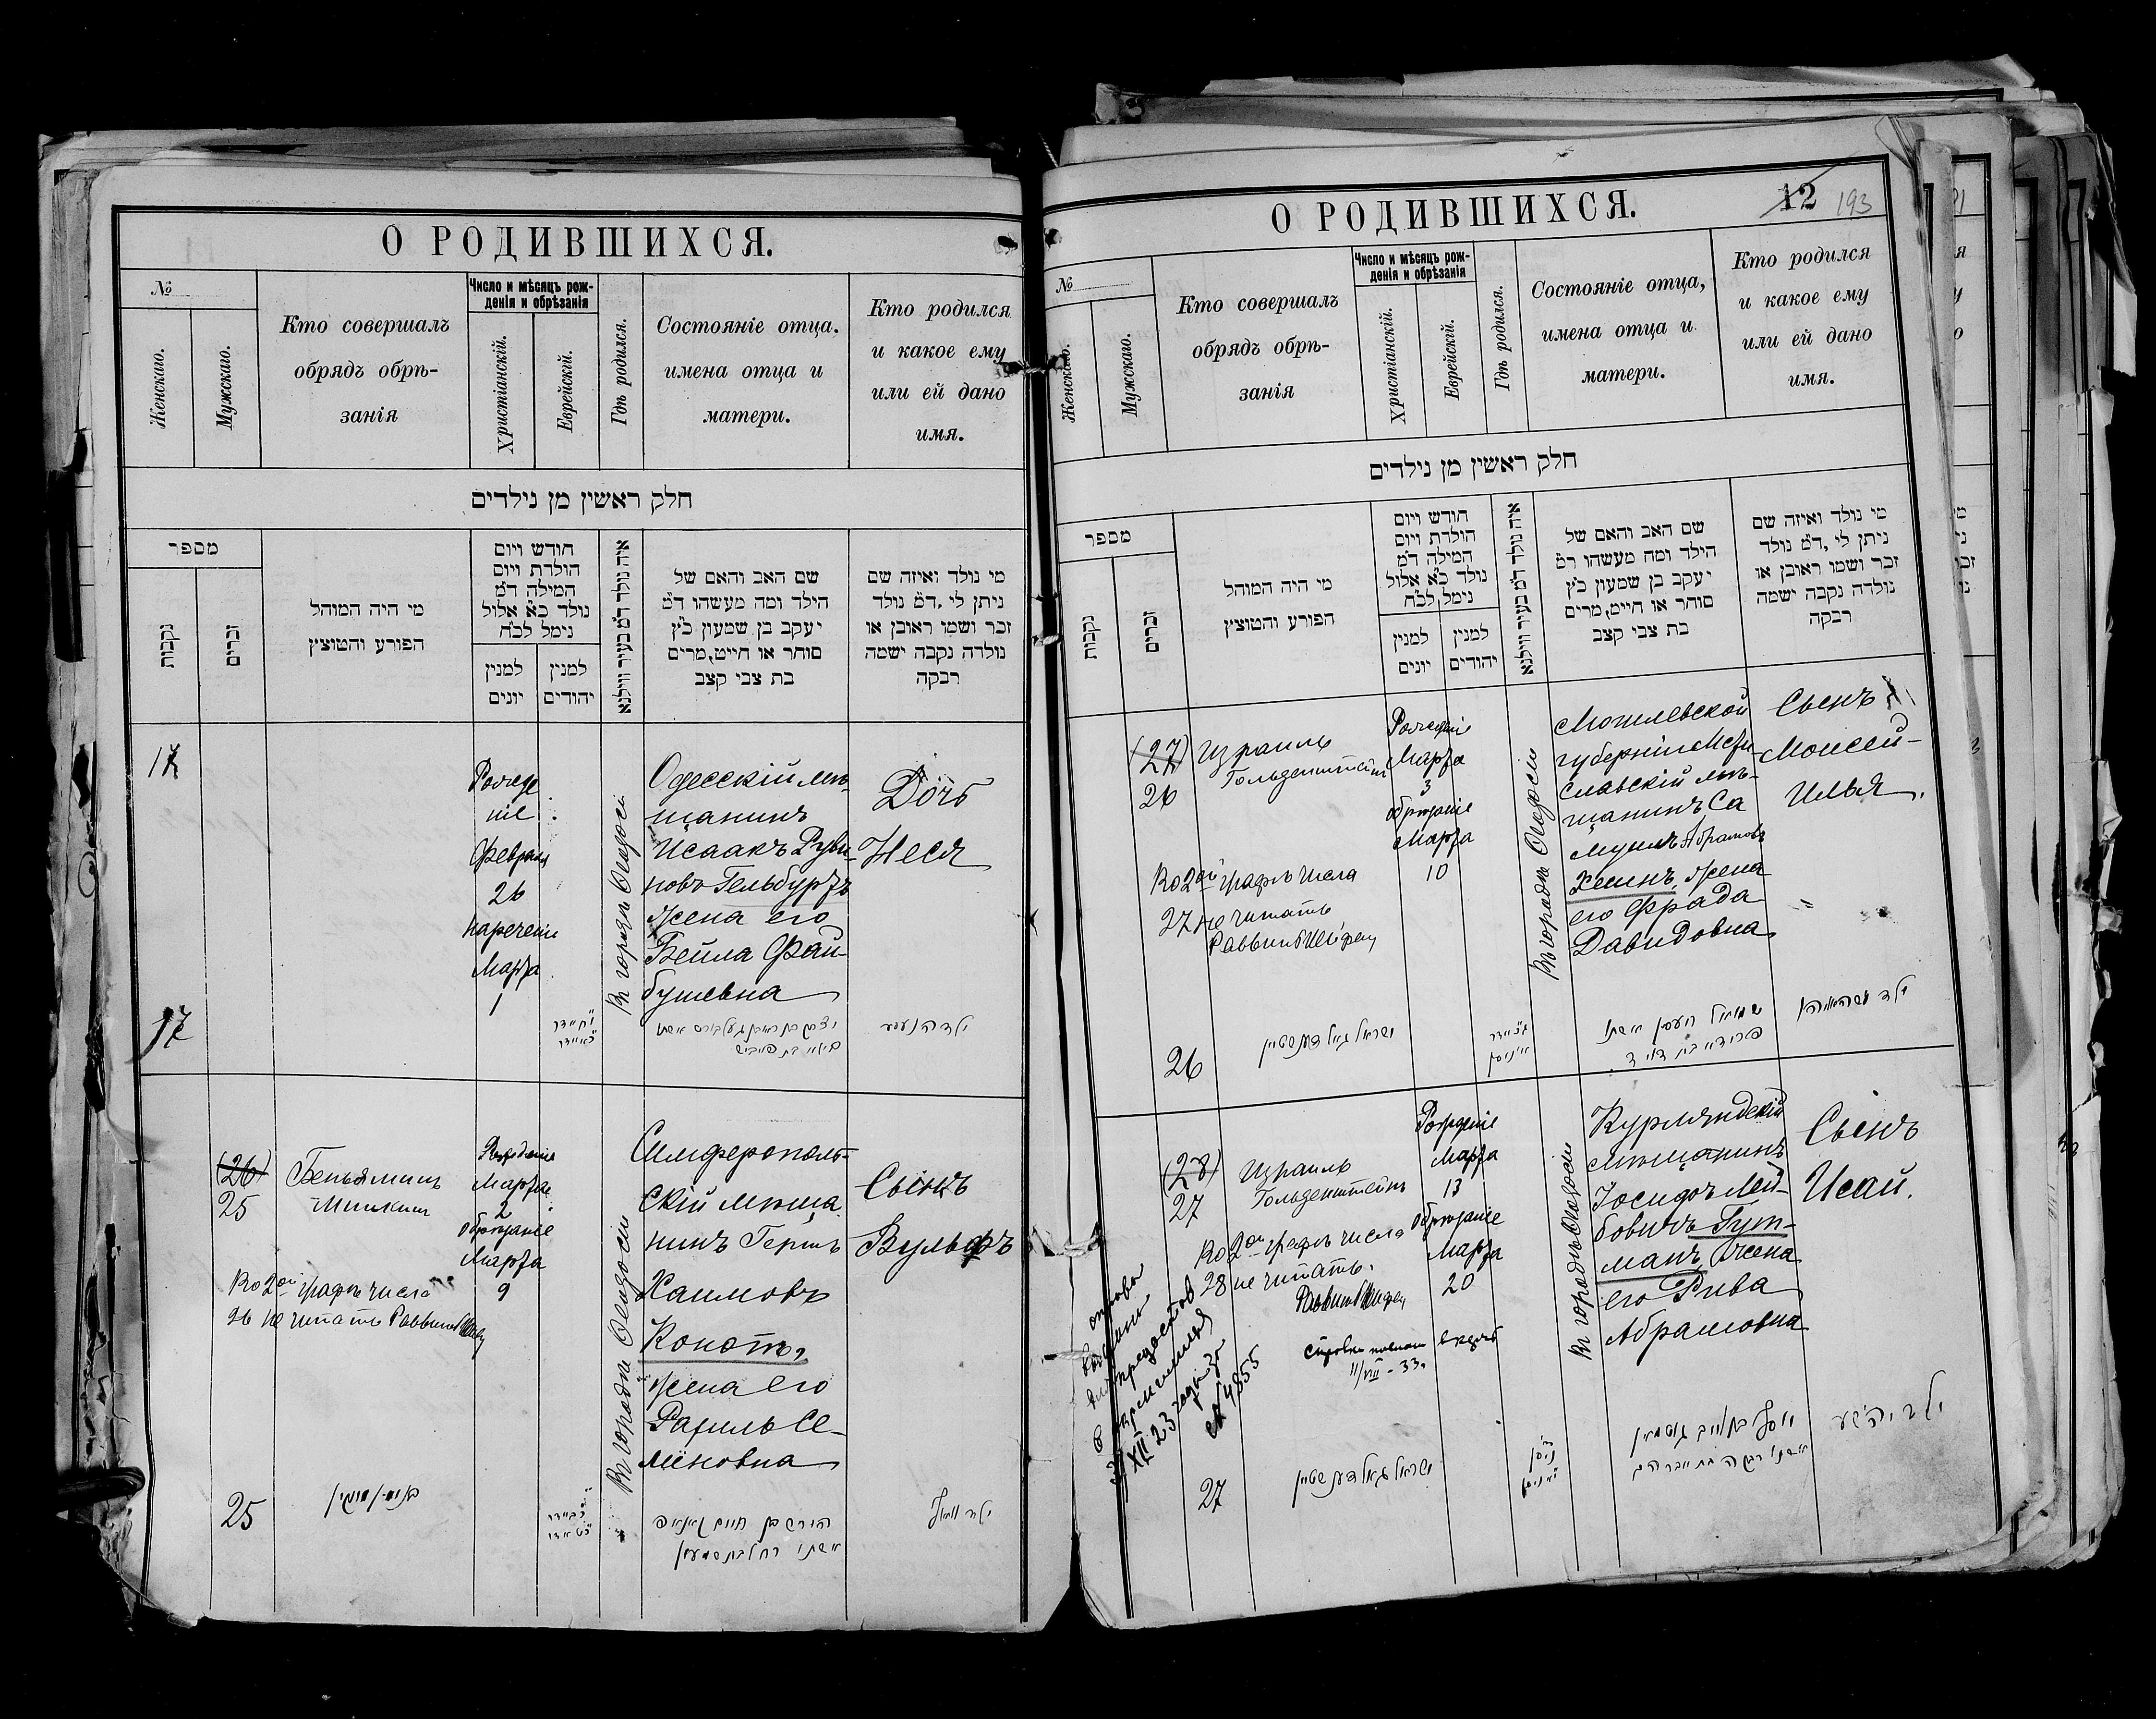 О РОДИВШИХСЯ.
№
Женскаго.
Мужскаго.
Кто совершалъ
обрядъ обрѣ-
занія
Число и мѣсяцъ рож-
денія и обрѣзанія
Христіанскій.
Еврейскій.
Гдѣ родился.
Состояніе отца.
имена отца и
матери.
Кто родился
и какое ему
или ей дано
имя.
חלק ראשין מן נילדים
מספר
נקבות
זכרים
מי היה המוהל
הפורע והמוצץ
חודש ויום
הולדת ויום
המילה ד״מ
נולד כ״א אלול
נימל לכ״ח
למנין
יונים
למנין
יהודים
איה נולד ד״מ בעיר ווילנא
שם האב והאם של
הילד ומה מעשהו ד״מ
יעקב בן שמעון כ״ץ
סוחר או חייט, מרים
בת צבי קצב
מי נולד ואיזה שם
ניתן לי, ד״מ נולד
זכר ושמו ראובן או
נולדה נקבה ישמה
רבקה
17
Рожде
ніе
Февраля
26
нареченіе
Марта
1
Въ городѣ Ѳеодосіи
Одесскій мѣ-
щанинъ
Исаакъ Руви-
новъ Гельбургъ
жена его
Бейла Фай-
бушевна
Дочь
Неся
17
(26)
25
Беньяминъ
Шишкинъ
Рожденіе
Марта
2
Обрѣзаніе
Марта
9
Во 2ой графѣ числа
26 не читать Раввинъ
Въ городѣ Ѳеодосіи
Симферополь-
скій мѣща
нинъ Гершъ
Хаимовъ
Конотъ,
жена его
Рахиль Се-
меновна
Сынъ
Вульфъ
25
О РОДИВШИХСЯ.
12 193
№
Женскаго.
Мужскаго.
Кто совершалъ
обрядъ обрѣ-
занія
Число и мѣсяцъ рож-
денія и обрѣзанія
Христіанскій.
Еврейскій.
Гдѣ родился.
Состояніе отца,
имена отца и
матери.
Кто родился
и какое ему
или ей дано
имя.
חלק ראשין מן נילדים
מספר
נקבות
זכרים
מי היה המוהל
הפורע והמוצץ
חודש ויום
הולדת ויום
המילה ד״מ
נולד כ״א אלול
נימל לכ״ח
למנין
יונים
למנין
יהודים
איה נולד ד״מ בעיר ווילנא
שם האב והאם של
הילד ומה מעשהו ד״מ
יעקב בן שמעון כ״ץ
סוחר או חייט, מרים
בת צבי קצב
מי נולד ואיזה שם
ניתן לי, ד״מ נולד
זכר ושמו ראובן או
נולדה נקבה ישמה
רבקה
(27)
26
Израиль
Гольденштейнъ
Рожденіе
Марта
3
Обрѣзаніе
Марта
10
Во 2ой графѣ числа
27 не читать
Раввинъ
Въ городѣ Ѳеодосіи
Могилевской
губерніи Мсти-
славскій мѣ-
щанинъ Са
муилъ Абрамовъ
Хесинъ, жена
его Фрада
Давидовна
Сынъ
Моисей-
Илья.
ישראל גאלדענשטיין
26
(28)
27
Израиль
Гольденштейнъ
Рожденіе
Марта
13
Обрѣзаніе
Марта
20
Во 2ой графѣ числа
28 не читать.
Раввинъ
11/VIII-33г
XII 23
№ 4855
Въ городѣ Ѳеодосіи
Курляндскій
мѣщанинъ
Іосифъ Лей-
бовичъ Гут-
манъ, жена
его Рива
Абрамовна
Сынъ
Исай.
ישראל גאלדענשטיין
27